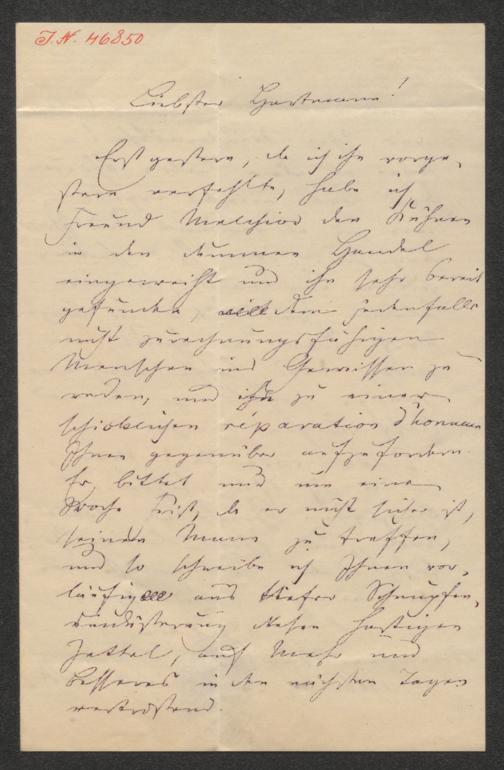 J.N. 46850
Liebster Hartmann!
Erst gestern, da ich ihn vorge-
stern verfehlte, habe ich
Freund Melchior den Kühnen
in den dummen Handel
eingeweiht und ihn sehr bereit
gefunden, dem jedenfalls
nicht zurechnungsfähigen
Menschen ins Gewissen zu
reden, und ihn zu einer
schicklichen réparation d'honneur
Ihnen gegenüber aufzufordern.
Er bittet nur um eine
Woche Frist, da er nicht sicher ist,
seinen Mann zu treffen,
und so schreibe ich Ihnen vor-
läufig aus tiefer Schnupfen-
verdüsterung diesen hastigen
Zettel, auf Mehr und
Besseres in den nächsten Tagen
vertröstend.